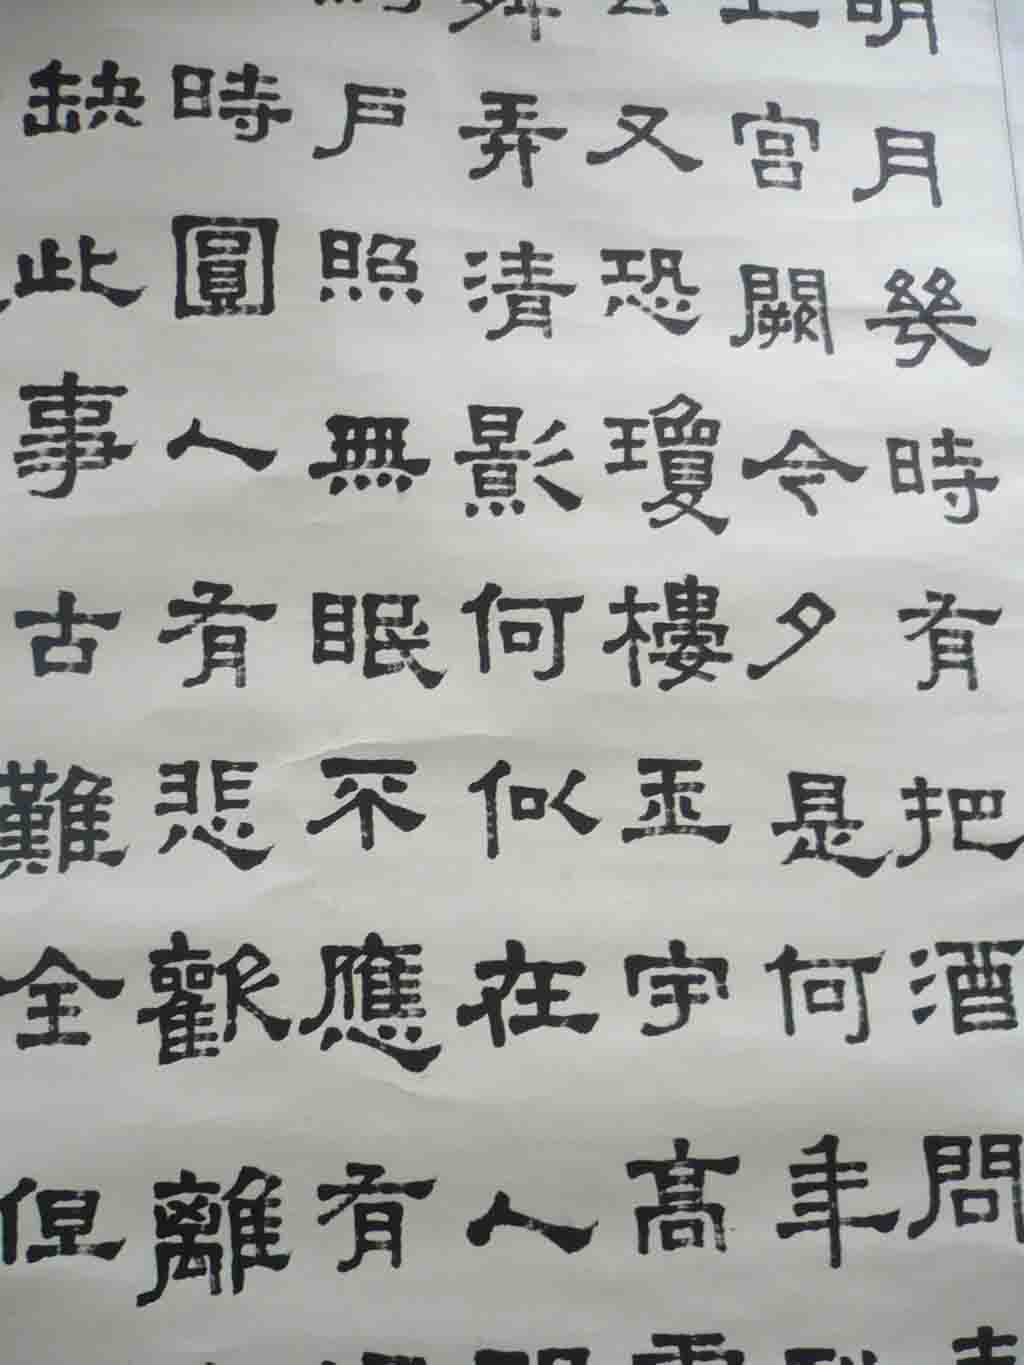 明月幾時有把酒問
上宮闕今夕是何年
又恐瓊樓玉宇高
舞弄清影何似在人
戶照無眠不應有
時圓人有悲歡離
缺此事古難全但